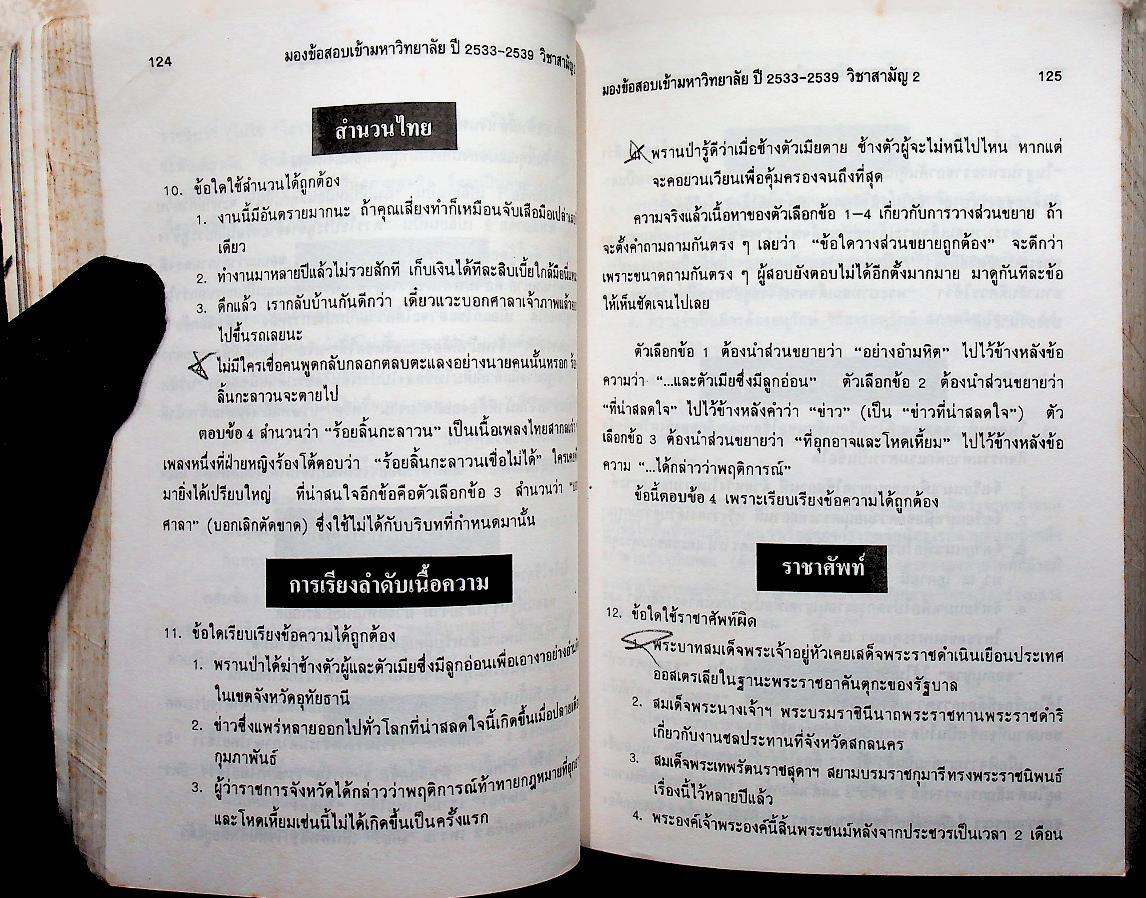 124
มองข้อสอบเข้ามหาวิทยาลัย ปี 2533-2539 วิชาสามัญ
สำนวนไทย
10. ข้อใดใช้สำนวนได้ถูกต้อง
1. งานนี้มีอันตรายมากนะ ถ้าคุณเสี่ยงทำก็เหมือนจับเสือมือเปล่า
เดียว
2. ทำงานมาหลายปีแล้วไม่รวยสักที เก็บเงินได้ทีละสิบเบี้ยใกล้มือ
3. ดึกแล้ว เรากลับบ้านกันดีกว่า เดี๋ยวแวะบอกศาลาเจ้าภาพแล้ว
ไปขึ้นรถเลยนะ
ไม่มีใครเชื่อคนพูดกลับกลอกตลบตะแลงอย่างนายคนนั้นหรอก
ลิ้นกะลาวนจะตายไป
ตอบข้อ 4 สำนวนว่า “ร้อยลิ้นกะลาวน” เป็นเนื้อเพลงไทยสากล
เพลงหนึ่งที่ฝ่ายหญิงร้องโต้ตอบว่า “ร้อยลิ้นกะลาวนเชื่อไม่ได้”
มายิ่งได้เปรียบใหญ่ ที่น่าสนใจอีกข้อคือตัวเลือกข้อ 3 สำนวนว่า
ศาลา” (บอกเลิกตัดขาด) ซึ่งใช้ไม่ได้กับบริบทที่กำหนดมานั้น
การเรียงลำดับเนื้อความ
11. ข้อใดเรียบเรียงข้อความได้ถูกต้อง
1. พรานป่าได้ฆ่าช้างตัวผู้และตัวเมียซึ่งมีลูกอ่อนเพื่อเอางาอย่าง
ในเขตจังหวัดอุทัยธานี
2. ข่าวซึ่งแพร่หลายออกไปทั่วโลกที่น่าสลดใจนี้เกิดขึ้นเมื่อปลาย
กุมภาพันธ์
3. ผู้ว่าราชการจังหวัดได้กล่าวว่าพฤติการณ์ท้าทายกฎหมาย
และโหดเหี้ยมเช่นนี้ไม่ได้เกิดขึ้นเป็นครั้งแรก
มองข้อสอบเข้ามหาวิทยาลัย ปี 2533-2539 วิชาสามัญ 2
125
พรานป่ารู้ดีว่าเมื่อช้างตัวเมียตาย ช้างตัวผู้จะไม่หนีไปไหน หากแต่
จะคอยวนเวียนเพื่อคุ้มครองจนถึงที่สุด
ความจริงแล้วเนื้อหาของตัวเลือกข้อ 1-4 เกี่ยวกับการวางส่วนขยาย ถ้า
จะตั้งคำถามถามกันตรง ๆ เลยว่า “ข้อใดวางส่วนขยายถูกต้อง” จะดีกว่า
เพราะขนาดถามกันตรง ๆ ผู้สอบยังตอบไม่ได้อีกตั้งมากมาย มาดูกันทีละข้อ
ให้เห็นชัดเจนไปเลย
ตัวเลือกข้อ 1 ต้องนำส่วนขยายว่า “อย่างอำมหิต” ไปไว้ข้างหลังข้อ
ความว่า “...และตัวเมียซึ่งมีลูกอ่อน” ตัวเลือกข้อ 2 ต้องนำส่วนขยายว่า
“ที่น่าสลดใจ” ไปไว้ข้างหลังคำว่า “ข่าว” (เป็น “ข่าวที่น่าสลดใจ”) ตัว
เลือกข้อ 3 ต้องนำส่วนขยายว่า “ที่อุกอาจและโหดเหี้ยม” ไปไว้ข้างหลังข้อ
ความ “...ได้กล่าวว่าพฤติการณ์”
ข้อนี้ตอบข้อ 4 เพราะเรียบเรียงข้อความได้ถูกต้อง
ราชาศัพท์
12. ข้อใดใช้ราชาศัพท์ผิด
1. พระบาทสมเด็จพระเจ้าอยู่หัวเคยเสด็จพระราชดำเนินเยือนประเทศ
ออสเตรเลียในฐานะพระราชอาคันตุกะของรัฐบาล
2. สมเด็จพระนางเจ้าฯ พระบรมราชินีนาถพระราชทานพระราชดำริ
เกี่ยวกับงานชลประทานที่จังหวัดสกลนคร
3. สมเด็จพระเทพรัตนราชสุดาฯ สยามบรมราชกุมารีทรงพระราชนิพนธ์
เรื่องนี้ไว้หลายปีแล้ว
4. พระองค์เจ้าพระองค์นี้สิ้นพระชนม์หลังจากประชวรเป็นเวลา 2 เดือน